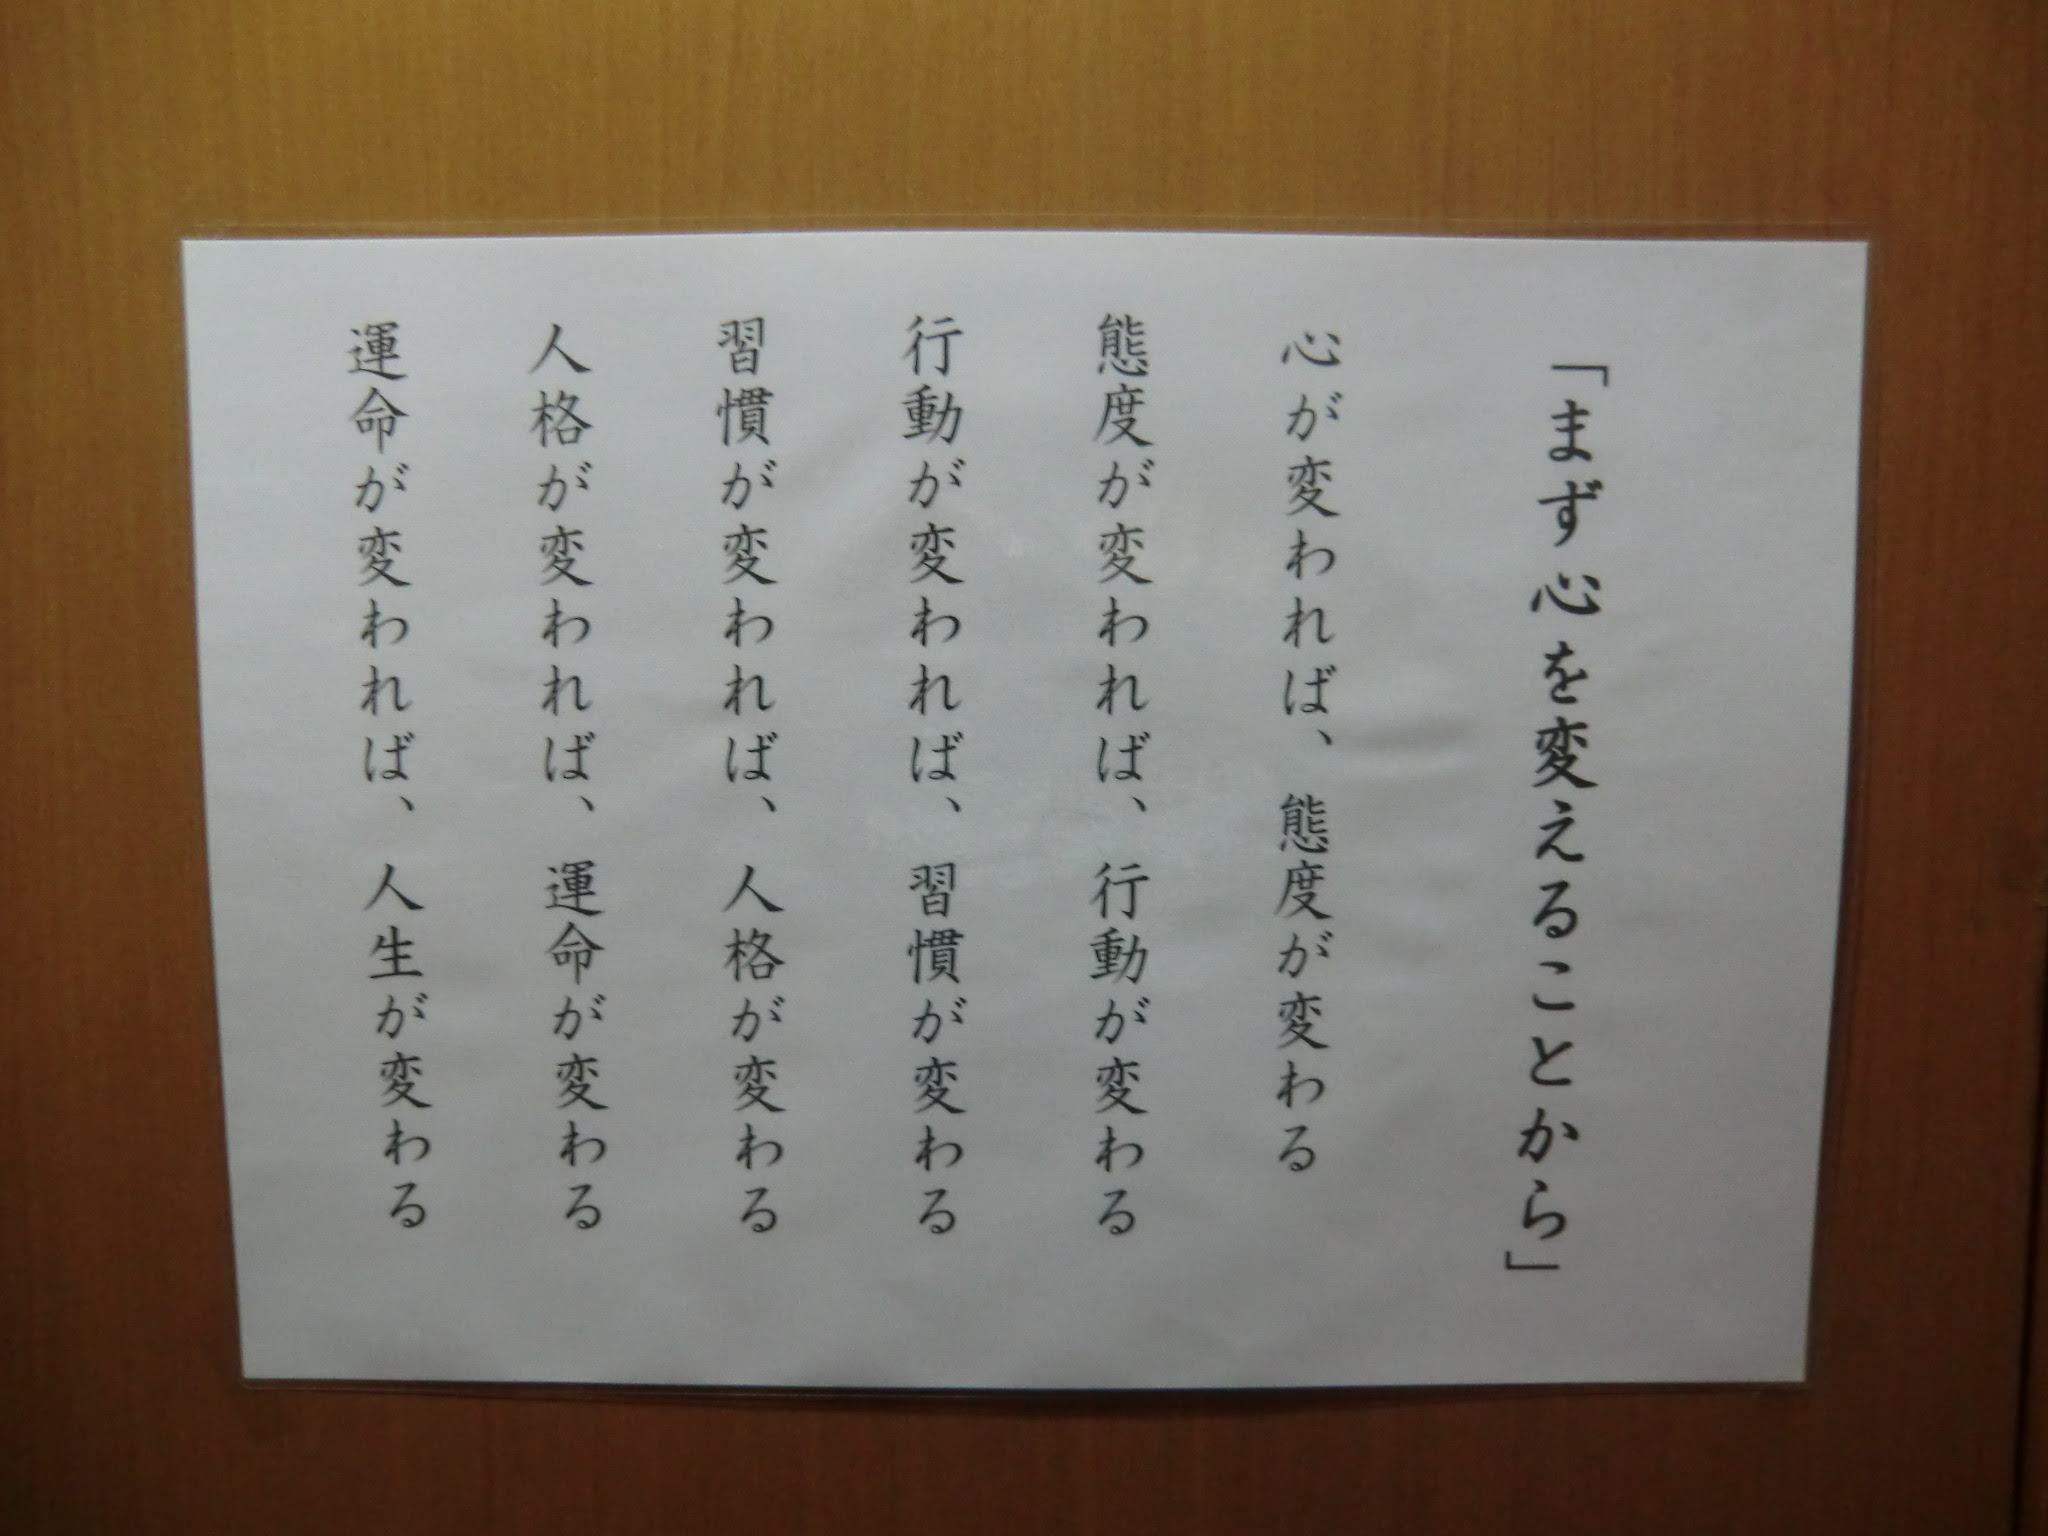 「まず心を変えることから」
心が変われば、態度が変わる
態度が変われば、行動が変わる
行動が変われば、習慣が変わる
習慣が変われば、人格が変わる
人格が変われば、運命が変わる
運命が変われば、人生が変わる